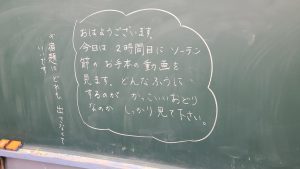 おはようございます。
今日は 2時間目に ソーラン
節の お手本の動画を
見ます。どんなふうに
するのが かっこいいおどり
なのか しっかり見て下さい。
※宿題は どれも 出さなくて
いいです